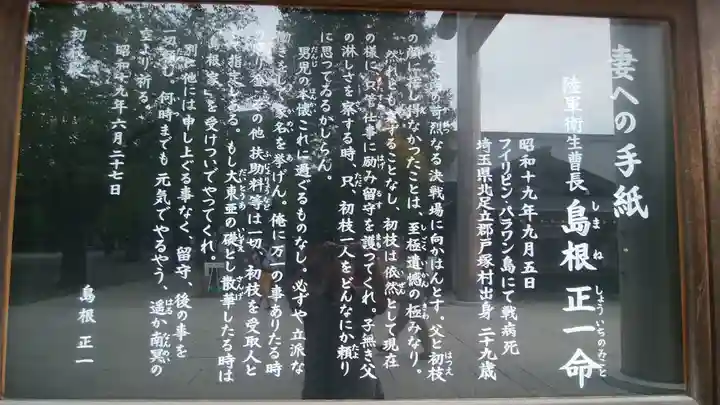 妻への手紙
陸軍衛生曹長 島根正一命
しまね しょういちのみこと
昭和十九年九月五日
フイリピン・パラワン島にて戦病死
埼玉県北足立郡戸塚村出身 二十九歳
苛烈なる決戦場に向かはんとす。父と初枝
の顔に接し得なかつたことは、至極遺憾の極みなり。
然れども案ずることなし、初枝は依然として現在
の様に只管仕事に励み留守を護つてくれ。子無き父
の淋しさを察する時、只、初枝一人をどんなにか頼り
に思つてゐるかしらん。
男児の本懐これに過ぐるものなし。必ずや立派な
働きをし、家名を挙げん。俺に万一の事ありたる時
その他扶助料等は一切、初枝を受取人と
指定しある。もし大東亜の礎とし散華したる時は
島根家」を受けついでやつてくれ。
別に他には申し上げる事なく、留守、後の事を
何時までも元気でやるやう、遥か南冥の
空より祈る。
昭和十九年六月二十七日
島根正一
初枝